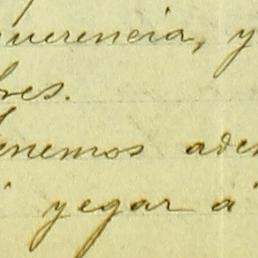 uerencia, y
res.
enemos ade
yegar a